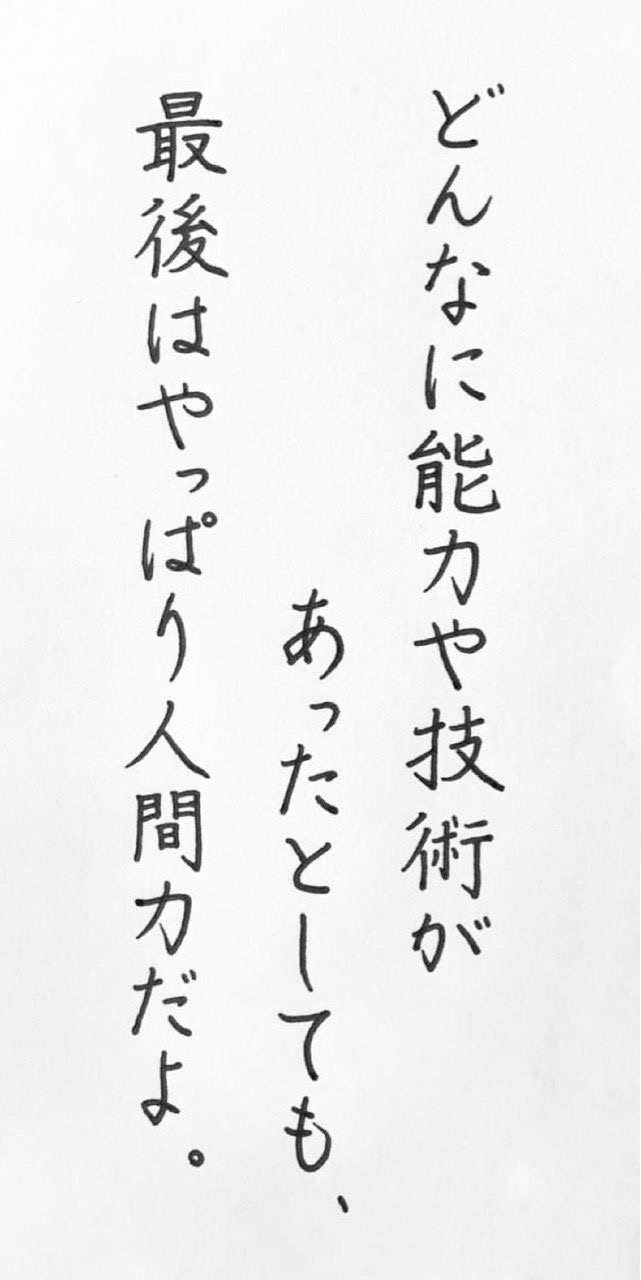 どんなに能力や技術が
あったとしても、
最後はやっぱり人間力だよ。